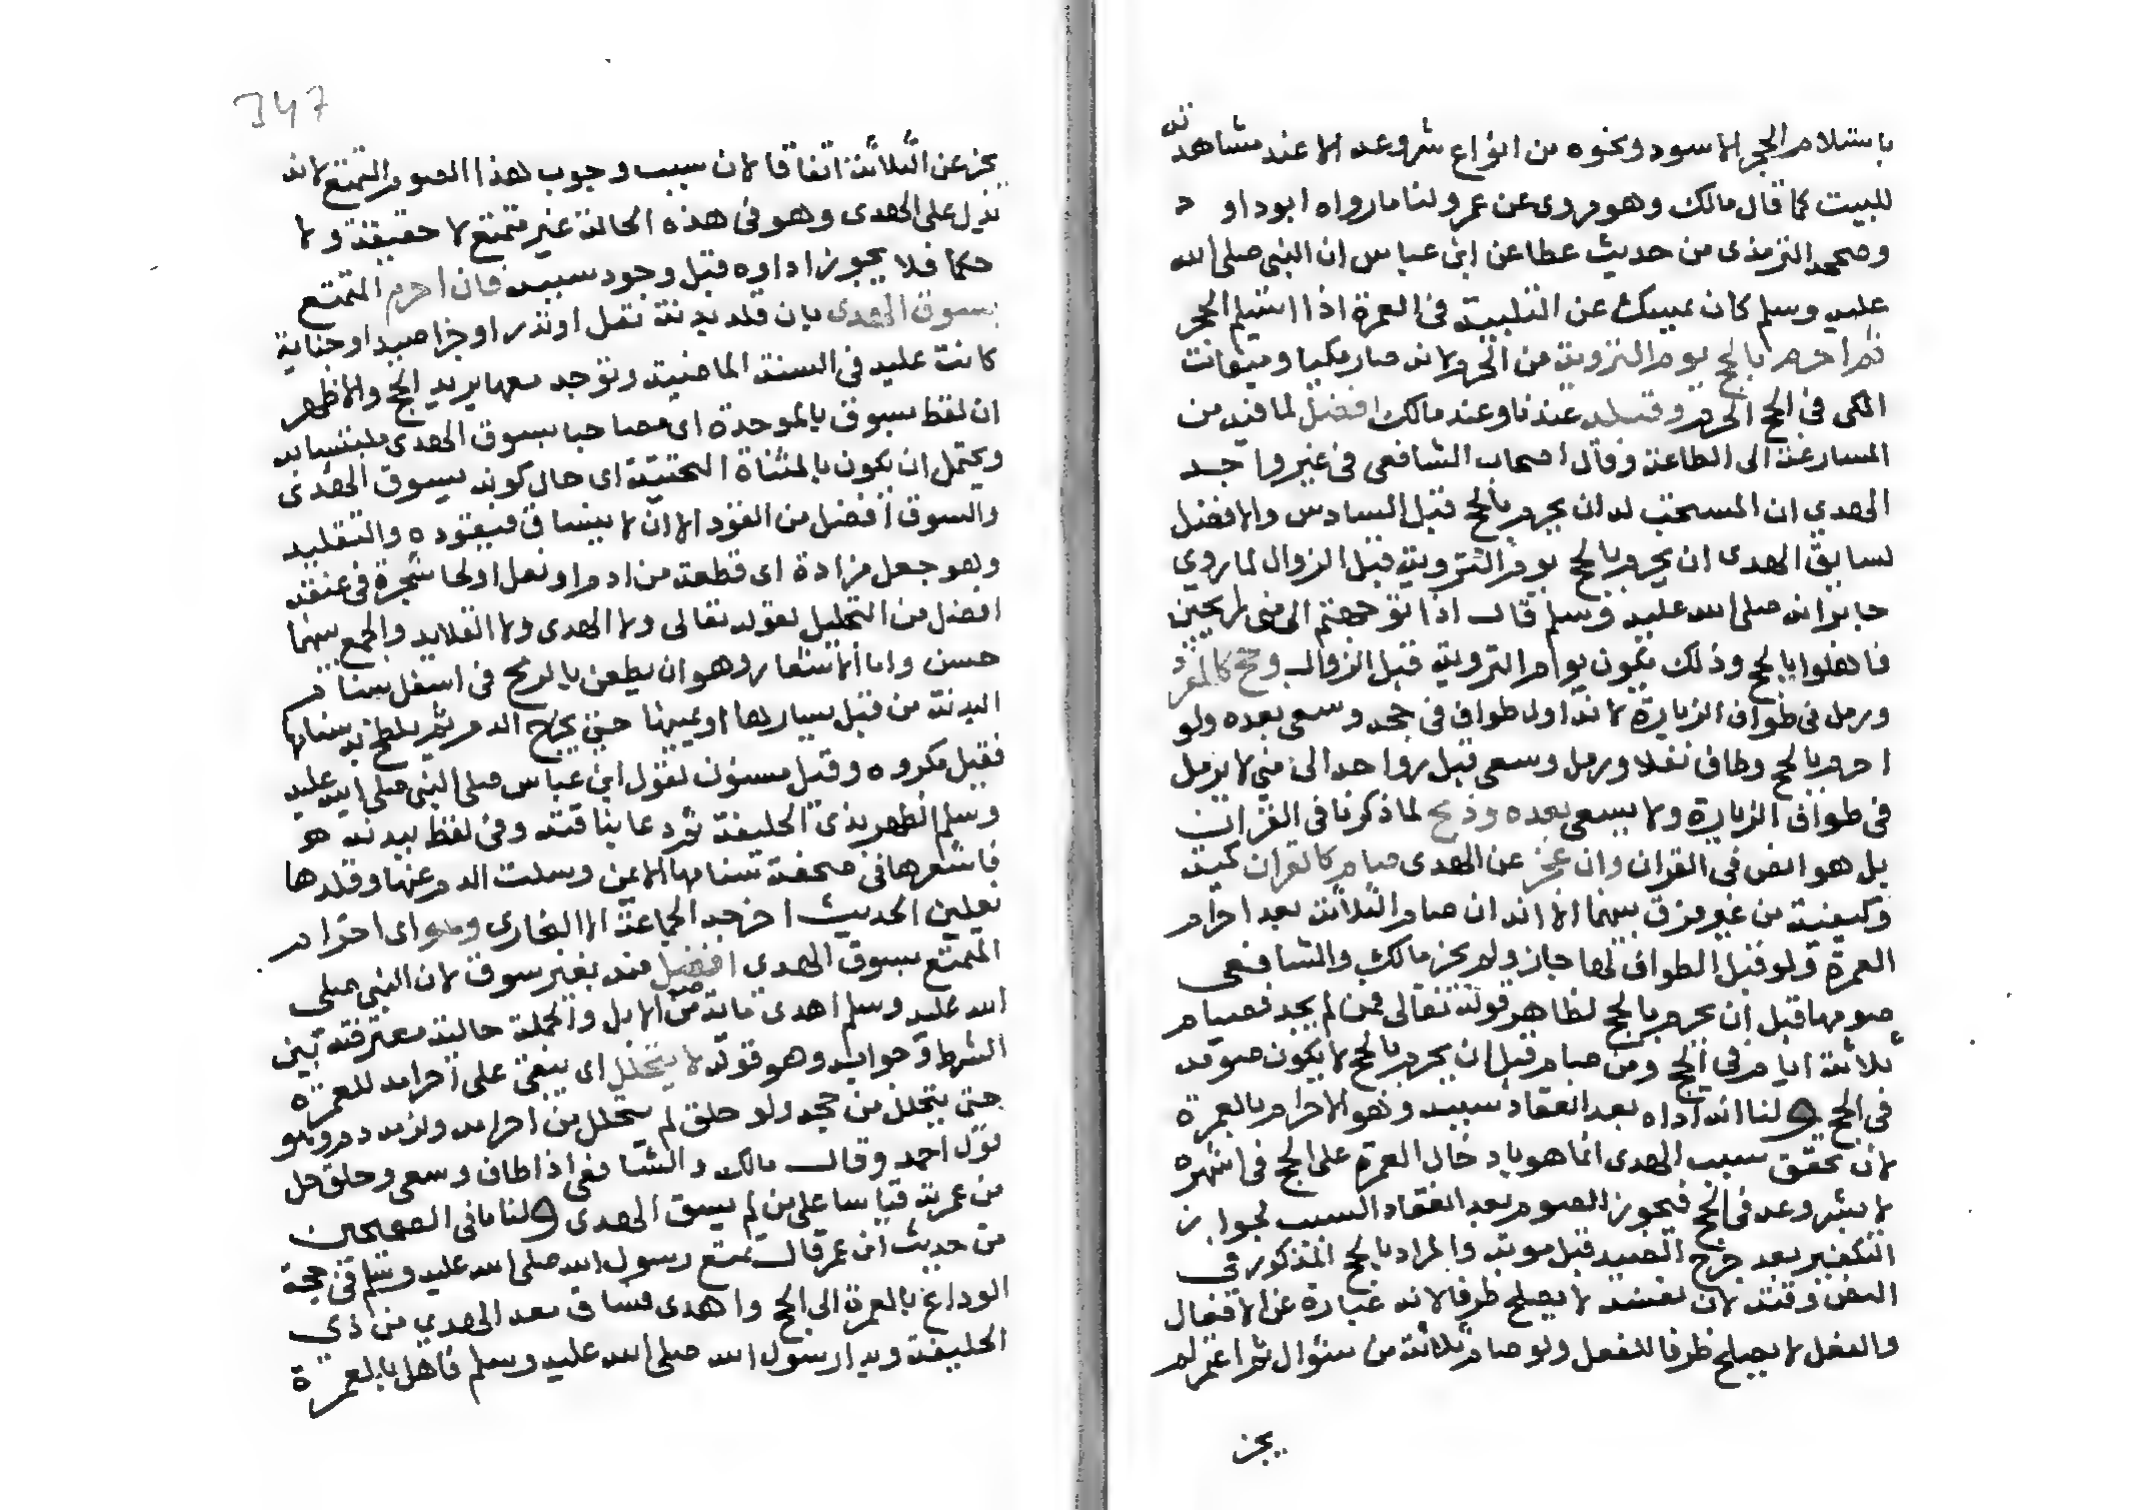 باستلام الحجر الاسود ونحوه من انواع شروعه الا عند مشاهدته
للبيت كما قال مالك وهو مروى عن عمر ولنا ما رواه ابو داود
وصححه الترمذى من حديث عطا عن ابن عباس ان النبى صلى الله
عليه وسلم كان يمسك عن التلبية فى العمرة اذا استلم الحجر
ثم احرم بالحج يوم التروية من الحرم لانه صار مكيا وميقات
المكى فى الحج الحرم وقبله عندنا وعند مالك افضل لما فيه من
المسارعة الى الطاعة وقال اصحاب الشافعى فى غير واجد
الهدي ان المستحب له ان يحرم بالحج قبل السادس والافضل
لسايق الهدى ان يحرم بالحج يوم التروية قبل الزوال لما روي
جابر انه صلى الله عليه وسلم قال اذا توجهتم الى منى رايحين
فاهلوا بالحج وذلك يكون يوم التروية قبل الزوال وحج كالمفرد
ورمل فى طواف الزيارة لانه اول طواف فى حجه وسعى بعده ولو
احرم بالحج وطاف نفلا ورمل وسعى قبل رواحه الى منى لا يرمل
فى طواف الزيارة ولا يسعى بعده وذبح لما ذكرنا فى القران
بل هو النص فى القران وان عجز عن الهدى صام كالقران كميه
وكيفية من غير فرق بينهما الا انه ان صام الثلاثة بعد احرام
العمرة ولو قبل الطواف لها جاز ولم يجز مالك والشافعى
صومها قبل ان يحرم بالحج لظاهر قوله تعالى فمن لم يجد فصيام
ثلاثة ايام فى الحج ومن صام قبل ان يحرم بالحج لا يكون صومه
فى الحج ولنا انه اداه بعد انعقاد سببه وهو الاحرام بالعمرة
لان تحقق سبب الهدى انما هو بادخال العمرة على الحج فى اشهره
لا بشروعه فى الحج فيجوز الصوم بعد انعقاد السبب لجواز
التكفير بعد جرح الصيد قبل موته والمراد بالحج المذكور فى
النص وقته لان نفسه لا يصلح ظرفا لانه عبارة عن الافعال
والفعل لا يصلح ظرفا للفعل ولو صام ثلاثة من شوال ثم اعتمر لم
يجز
347
يجز عن الثلاثة اتفاقا لان سبب وجوب هذا الصوم التمتع لانه
بدل على الهدى وهو فى هذه الحالة غير متمتع لا حقيقة ولا
حكما فلا يجوز اداوه قبل وجود سببه فان احرم المتمتع
بسوق الهدى بان قلد بدنة نفل او نذر او جزا صيد او جناية
كانت عليه فى السنة الماضية وتوجه معها يريد الحج والاظهر
ان لفظ بسوق بالموحدة اى مصاحبا بسوق الهدى
ويحتمل ان يكون بالمثناة التحتية اى حال كونه يسوق الهدى
والسوق افضل من القود الا ان لا ينساق فيقوده والتقليد
وهو جعل مزادة اى قطعة من ادم او نعل او لحا شجرة فى عنقه
افضل من التجليل لقوله تعالى ولا الهدى ولا القلايد والجمع بينهما
حسن واما الاشعار وهو ان يطعن بالرمح فى اسفل سنام
البدنة من قبل يسارها او يمينها حتى يخرج الدم ثم يلطخ به سنامها
فقيل مكروه وقيل مسنون لقول ابن عباس صلى النبى صلى الله عليه
وسلم الظهر بذى الحليفة ثم دعا بناقته وفى لفظ ببدنته هو
فاشعرها فى صحفة سنامها الايمن وسلت الدم عنها وقلدها
نعلين الحديث اخرجه الجماعة الا البخارى وهو اى احرام
المتمتع بسوق الهدى افضل منه بغير سوق لان النبى صلى
الله عليه وسلم اهدى ماية من الابل والجملة حالية معترضة بين
الشرط وجوابه وهو قوله لا يتحلل اى يبقى على احرامه للعمرة
حتى يتحلل من حجه ولو حلق لم يتحلل من احرامه ولزمه دم وهو
قول احمد وقال مالك والشافعى اذا طاف وسعى وحلق حل
من عمرته قياسا على من لم يسق الهدى ولنا ما فى الصحيحين
من حديث ابن عمر قال تمتع رسول الله صلى الله عليه وسلم فى حجة
الوداع بالعمرة الى الحج واهدى فساق معه الهدي من ذي
الحليفة وبدا رسول الله صلى الله عليه وسلم فاهل بالعمرة